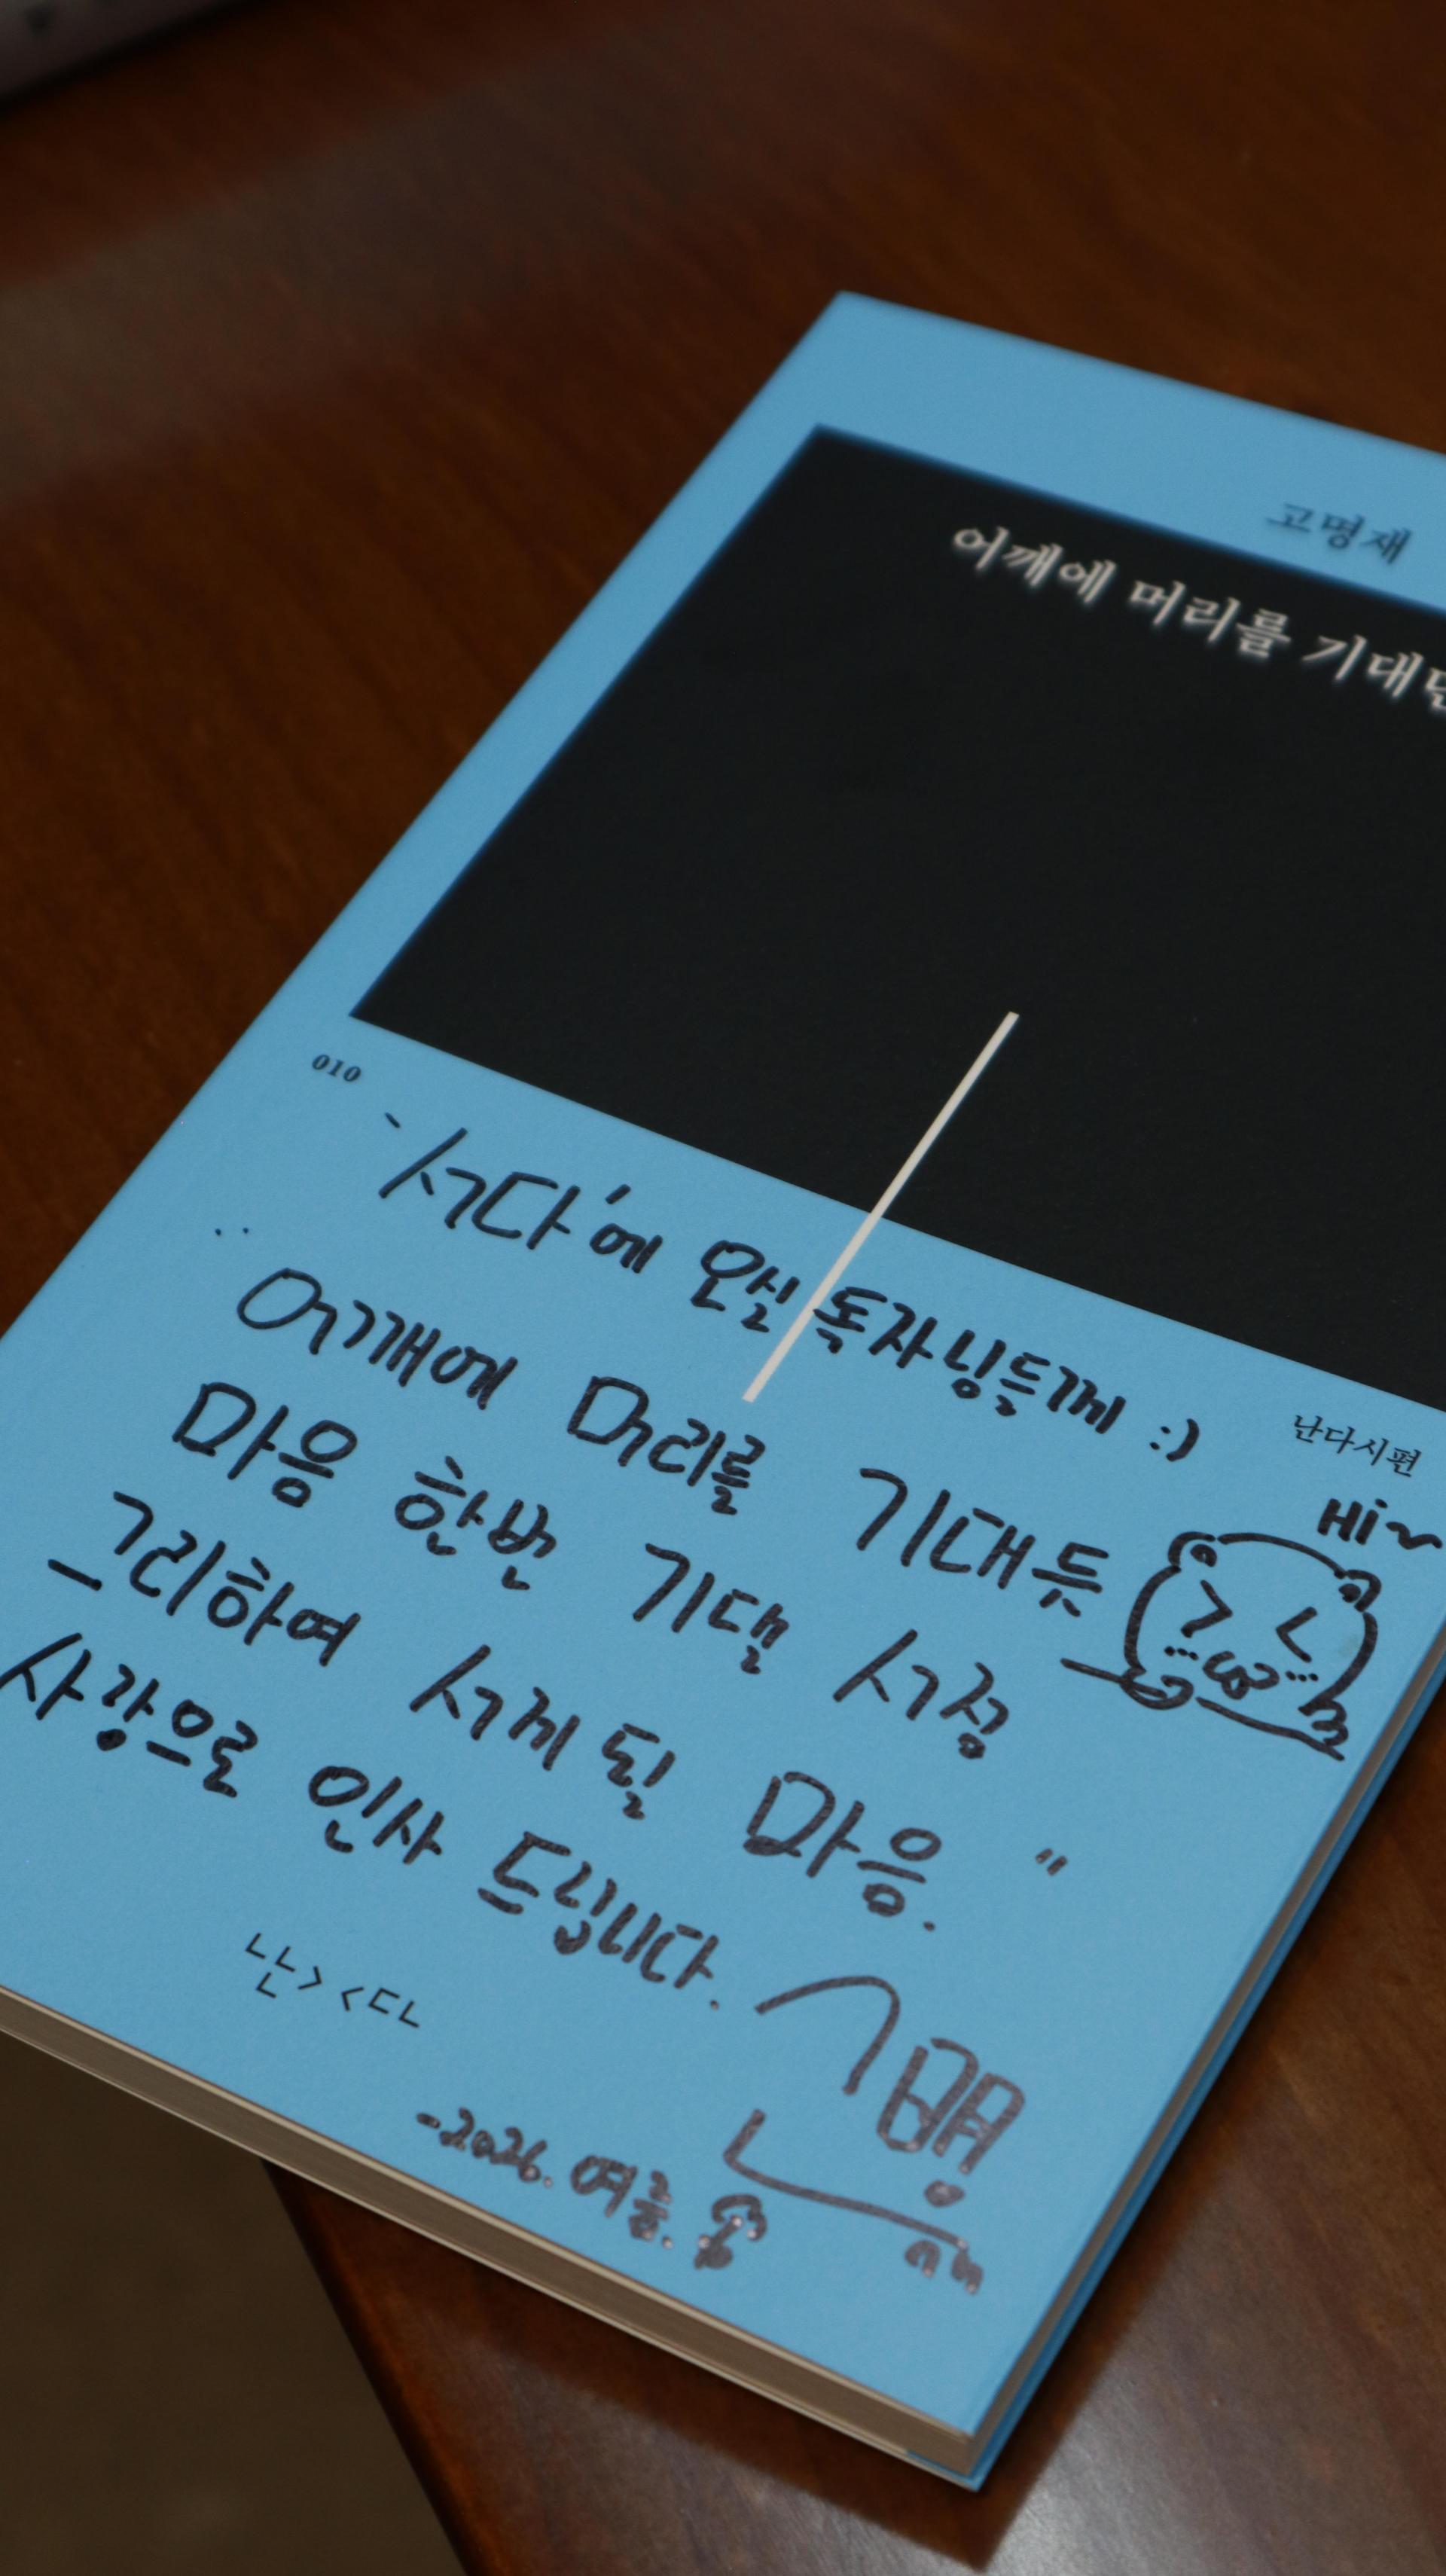 고명재
어깨에 머리를 기대
010
'서다'에 오실 독자님들께 :)
난다시편
Hi~
" 어깨에 머리를 기대듯
마음 한번 기댈 서정
그리하여 서께 될 마음. "
사랑으로 인사 드립니다.
난><다
고명재
-2026. 여름.